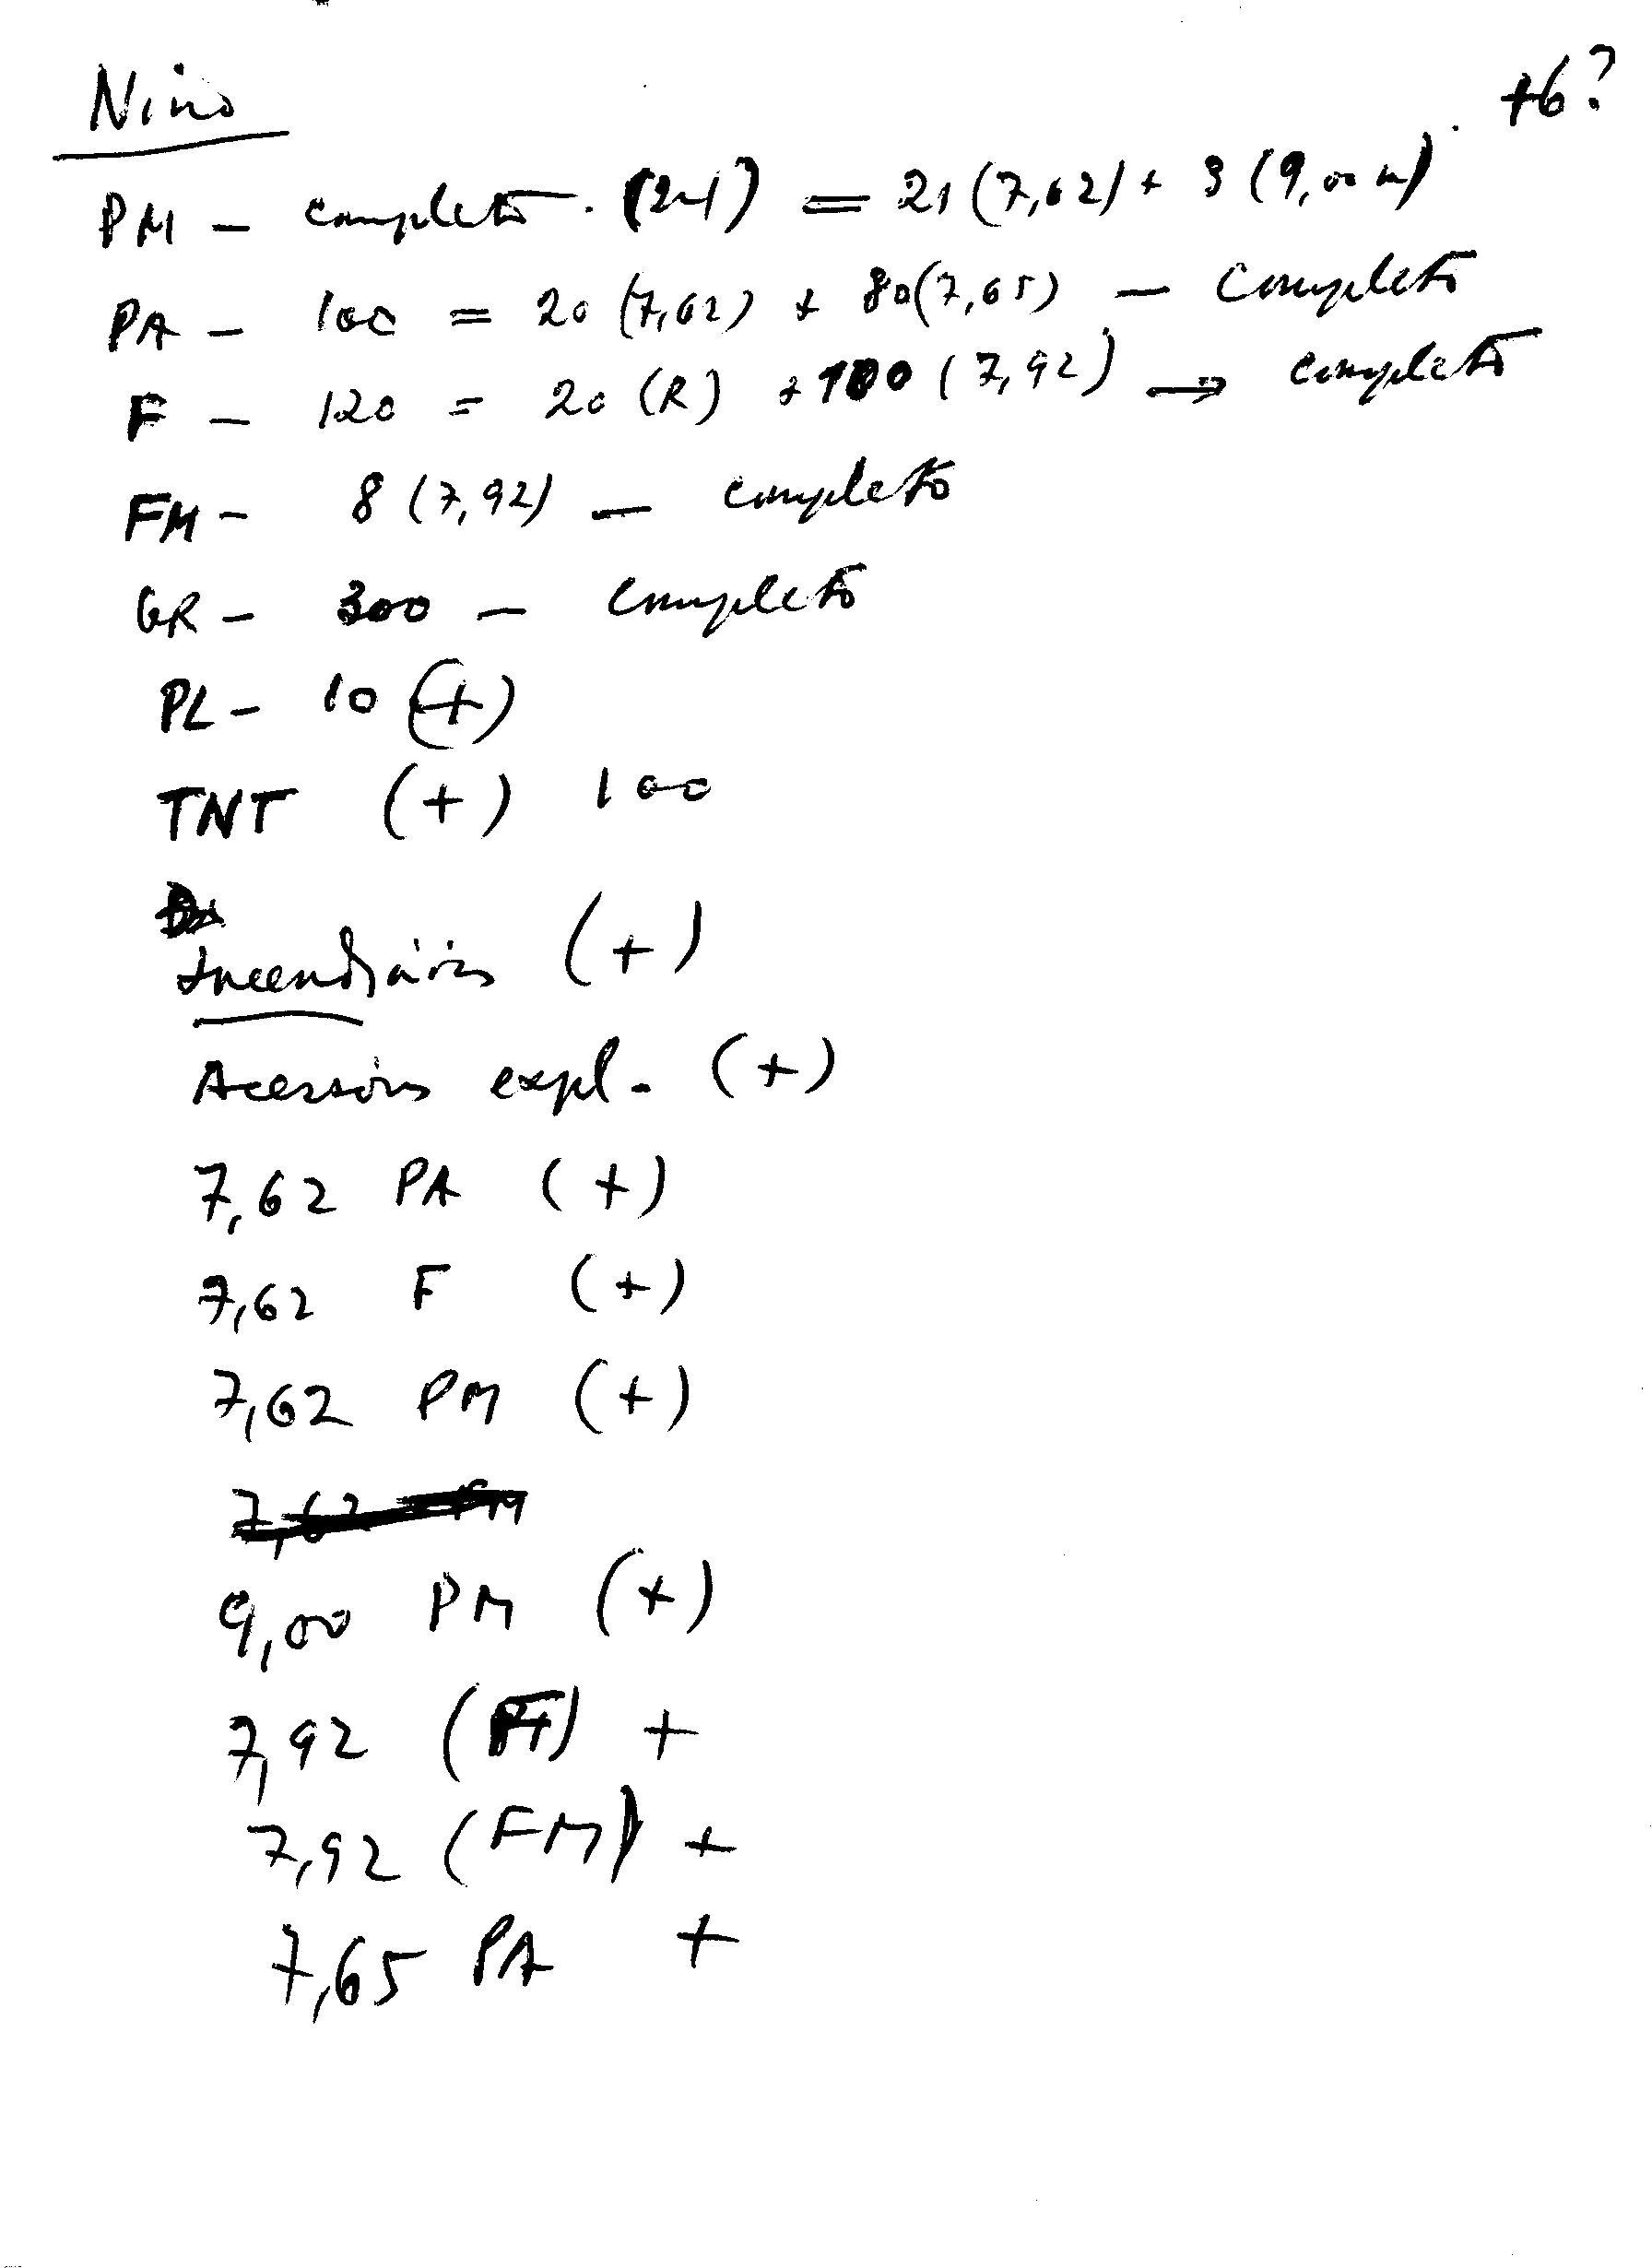 Nino
+6?
PM - completo. (24) = 21 (7,62) + 3 (9,00 m)
PA - 100 = 20 (7,62) + 80 (7,65) - completo
F - 120 = 20 (R) + 100 (7,92) → completo
FM - 8 (7,92) - completo
GR - 300 - completo
PL - 10 (+)
TNT (+) 100
Incendiários (+)
Acessórios expl. (+)
7,62 PA (+)
7,62 F (+)
7,62 PM (+)
7,62 PM
9,00 PM (+)
7,92 (F) +
7,92 (FM) +
7,65 PA +